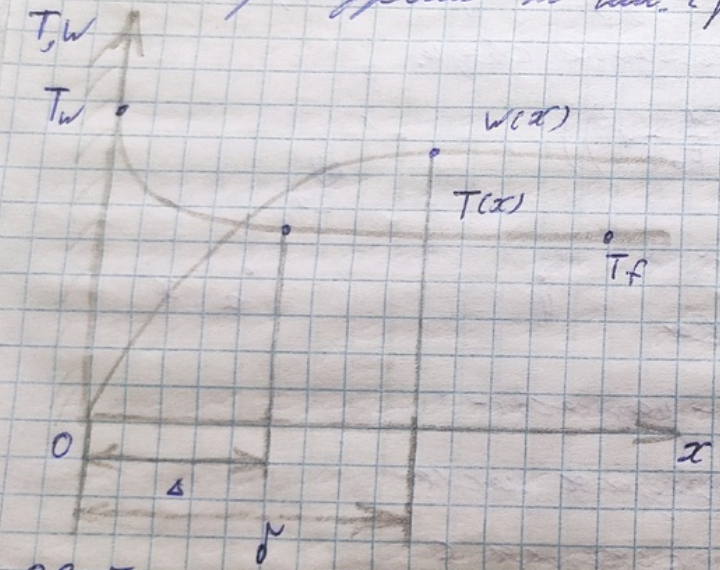 T,W
Tw
W(x)
T(x)
Tf
0
x
Δ
δ